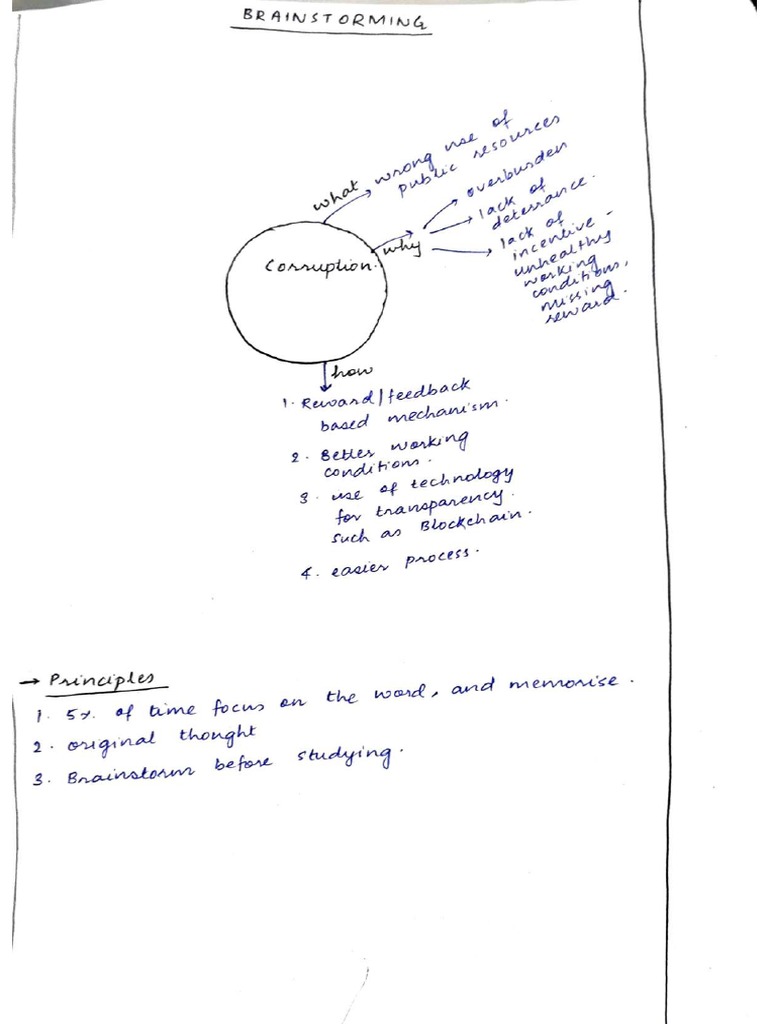 BRAINSTORMING
what
wrong use of
public resources
why
overburden
lack of
deterrance.
lack of
incentive -
unhealthy
working
conditions,
missing
reward.
Corruption.
how
1. Reward/feedback
based mechanism.
2. Better working
conditions.
3. use of technology
for transparency.
such as Blockchain.
4. easier process.
→ Principles
1. 5%. of time focus on the word, and memorise.
2. original thought
3. Brainstorm before studying.